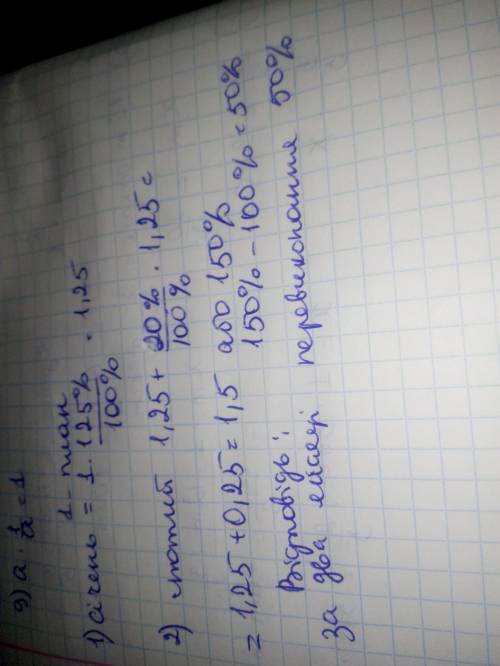 9) a · 1/a = 1
1 - план
1) січень = 1 · 125%/100% = 1,25
2) лютий 1,25 + 20%/100% · 1,25 =
= 1,25 + 0,25 = 1,5 або 150%
150% - 100% = 50%
Відповідь:
за два місяці перевиконання 50%